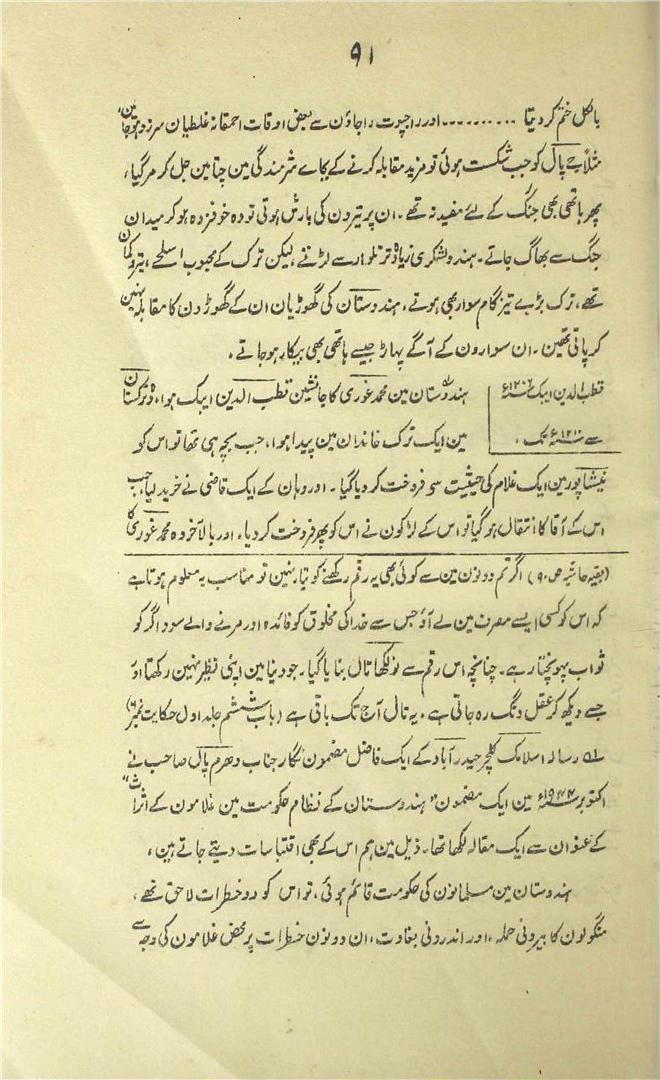 ۹۱
بالکل ختم کر دیتا ۔۔۔۔۔۔۔۔۔۔ اور راجپوت راجاؤن سے بعض اوقات احمقانہ غلطیان سرزد ہو جاتین،
مثلاً جے پال کو جب شکست ہوئی تو مزید مقابلہ کرنے کے بجاے شرمندگی مین چتا مین جل کر مر گیا،
پھر ہاتھی بھی جنگ کے لئے مفید نہ تھے۔ ان پر تیرون کی بارش ہوتی تو وہ خوفزدہ ہو کر میدان
جنگ سے بھاگ جاتے۔ ہندو لشکری زیادہ تر تلوار سے لڑتے، لیکن ترک کے محبوب اسلحے، تیر و کمان
تھے، ترک بڑے تیز گام سوار بھی ہوتے، ہندوستان کی گھوڑیان ان کے گھوڑون کا مقابلہ نہین
کر پاتی تھین۔ ان سوارون کے آگے پہاڑ جیسے ہاتھی بھی بیکار ہو جاتے۔
قطب الدین ایبک ۱۲۰۶ء
سے ۱۲۱۰ء تک،
ہندوستان مین محمد غوری کا جانشین قطب الدین ایبک ہوا، وہ ترکستان
مین ایک ترک خاندان مین پیدا ہوا، جب بچہ ہی تھا تو اس کو
نیشاپور مین ایک غلام کی حیثیت سے فروخت کر دیا گیا۔ اور وہان کے ایک قاضی نے خرید لیا، جب
اس کے آقا کا انتقال ہو گیا تو اس کے لڑکون نے اس کو پھر فروخت کر دیا، اور بالآخر وہ محمد غوری کا
(بقیہ حاشیہ ص ۹۰) اگر تم دونون مین سے کوئی بھی یہ رقم رکھنے کو تیار نہین تو مناسب یہ معلوم ہوتا ہے
کہ اس کو کسی ایسے مصرف مین لے آؤ جس سے خدا کی مخلوق کو فائدہ اور مرنے والے سوداگر کو
ثواب پہونچتا رہے۔ چنانچہ اس رقم سے نولکھا تال بنایا گیا۔ جو دنیا مین اپنی نظیر نہین رکھتا اور
جسے دیکھ کر عقل دنگ رہ جاتی ہے، یہ تال آج تک باقی ہے (باب ششم جلد اول حکایت نمبر ۶)
رسالہ اسلامک کلچر حیدرآباد کے ایک فاضل مضمون نگار جناب دھرم پال صاحب نے
اکتوبر ۱۹۴۴ء مین ایک مضمون "ہندوستان کے نظام حکومت مین غلامون کے اثرات"
کے عنوان سے ایک مقالہ لکھا تھا۔ ذیل مین ہم اس کے بھی اقتباسات دیتے جاتے ہین،
ہندوستان مین مسلمانون کی حکومت قائم ہوئی، تو اس کو دو خطرات لاحق تھے،
منگولون کا بیرونی حملہ، اور اندرونی بغاوت، ان دونون خطرات پر محض غلامون کی وجہ سے